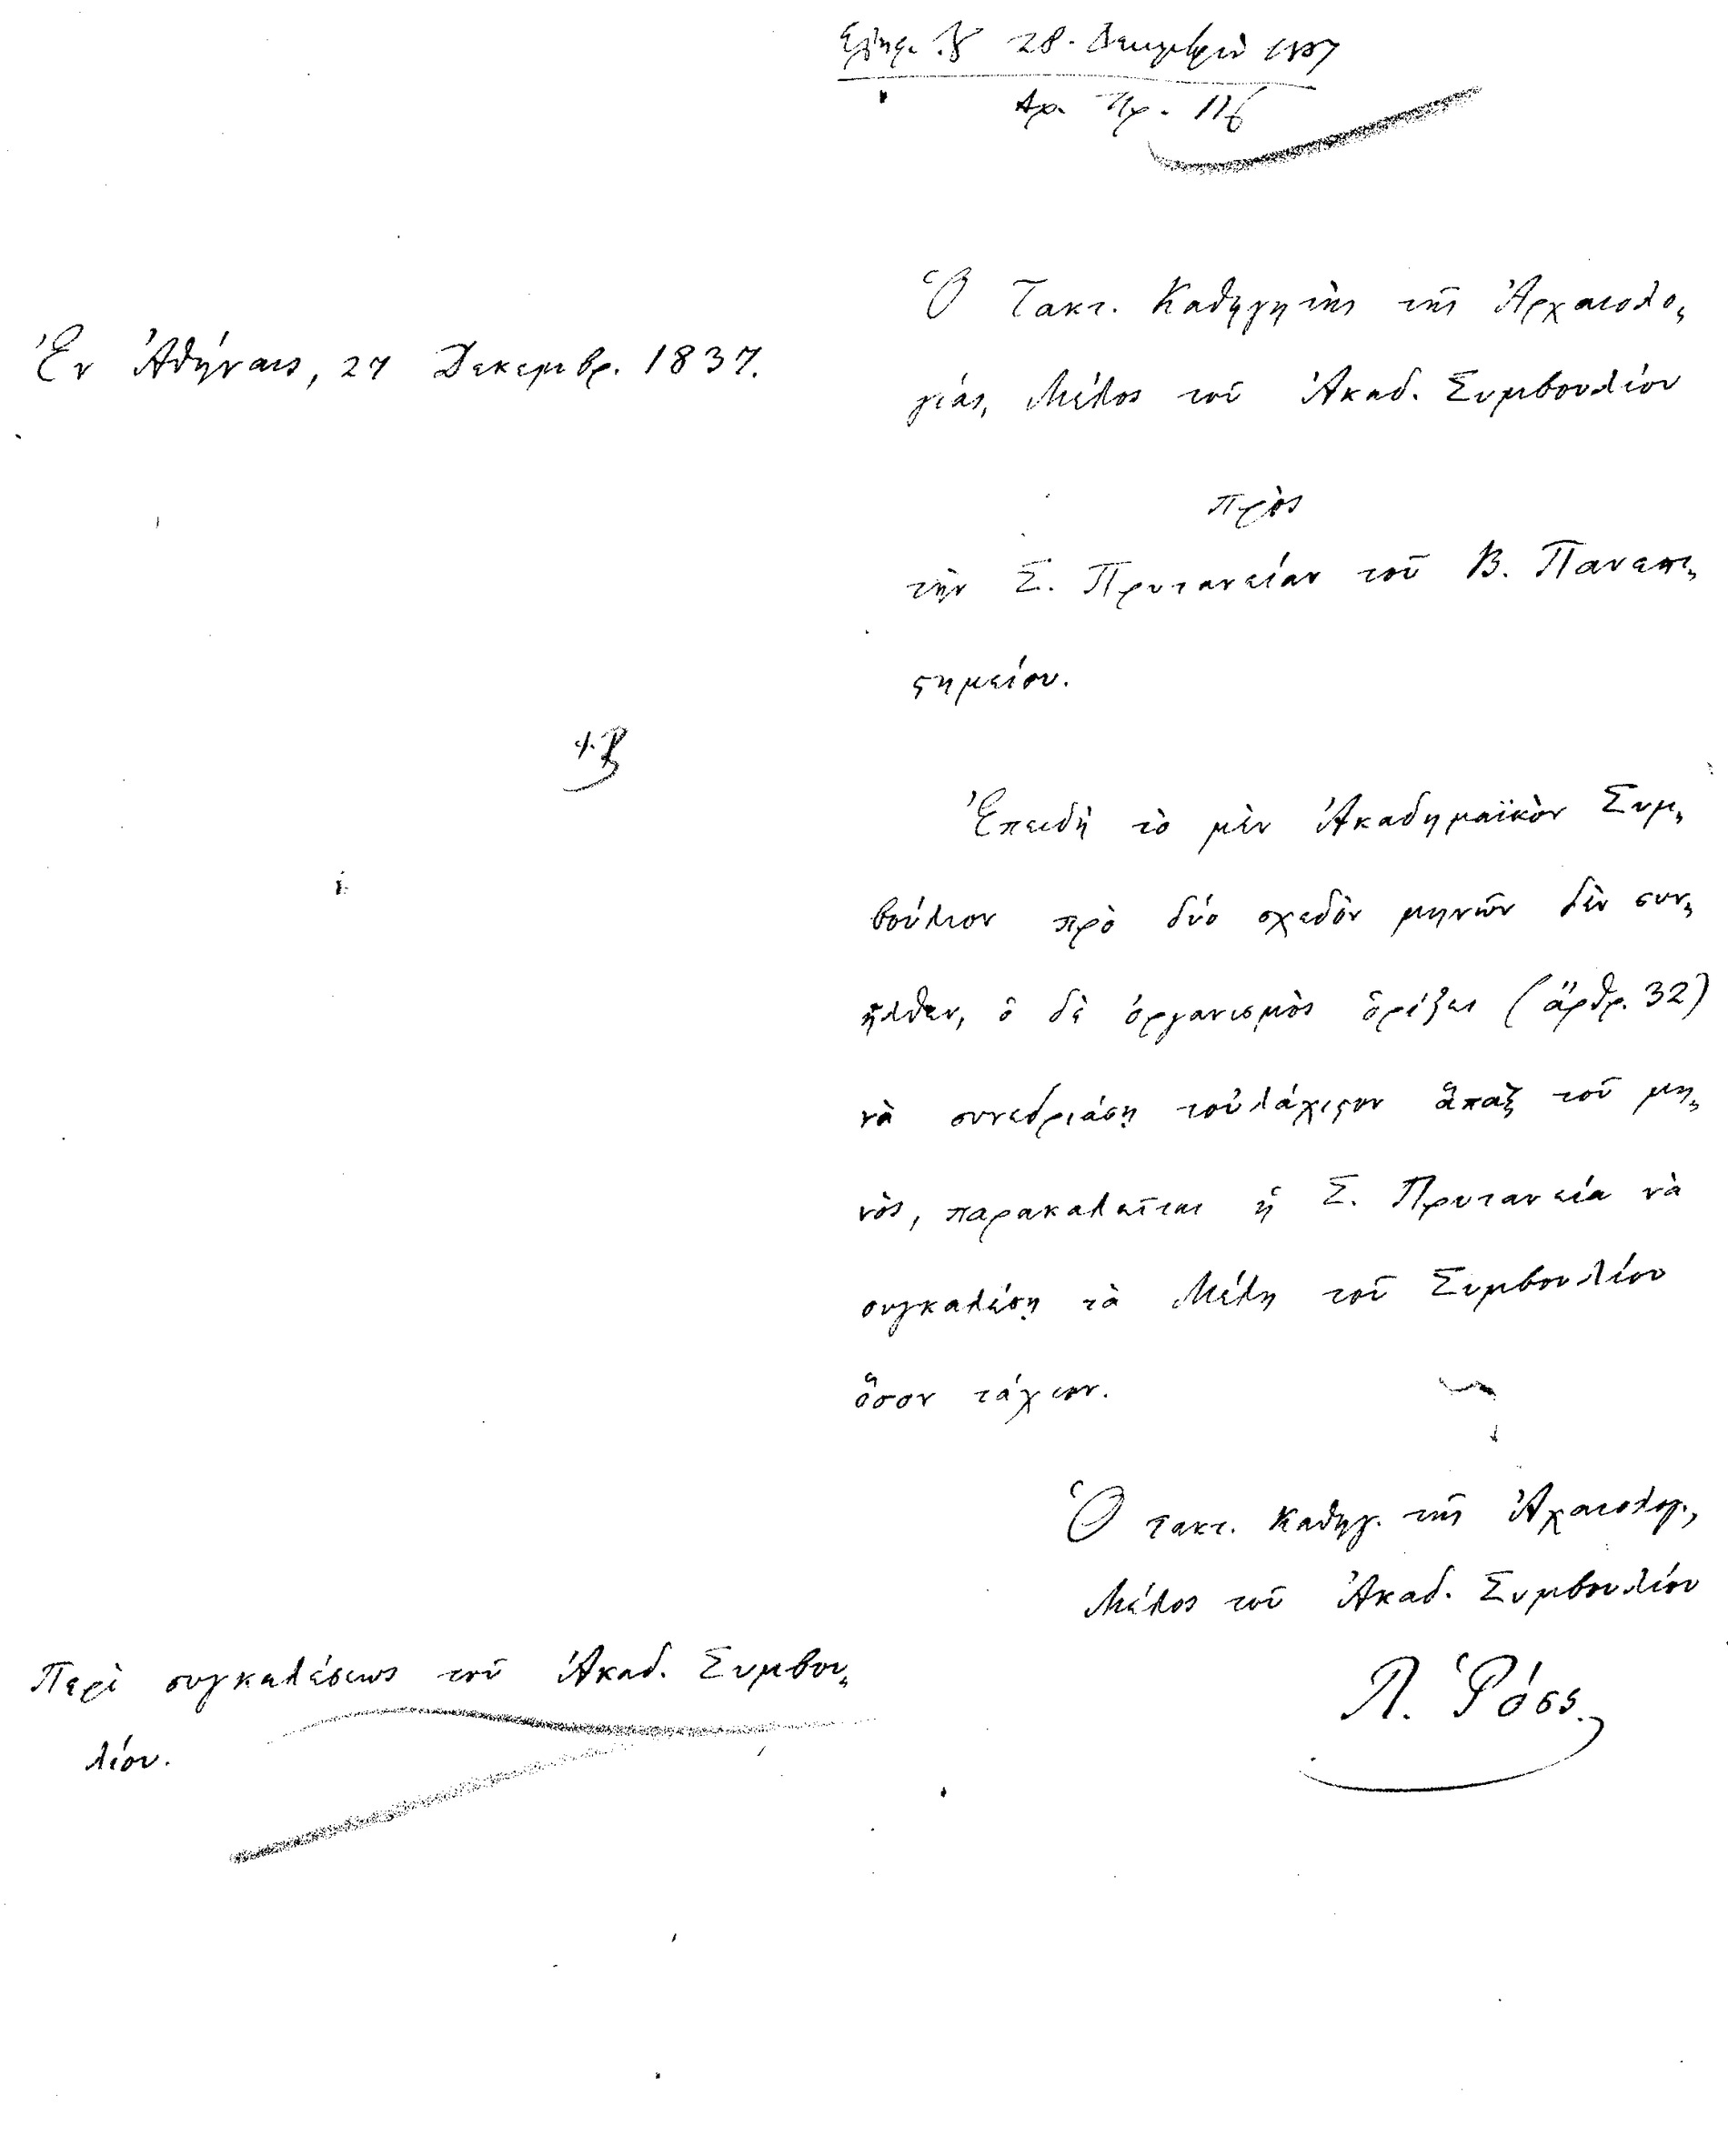 28. Δεκεμβρίου 1837
Αρ. Πρ. 116
Ὁ Τακτ. Καθηγητὴς τῆς Ἀρχαιολο„
γίας, Μέλος τοῦ Ἀκαδ. Συμβουλίου
Ἐν Ἀθήναις, 27 Δεκεμβρ. 1837.
πρὸς
τὴν Σ. Πρυτανείαν τοῦ Β. Πανεπι„
ςημείου.
Ἐπειδὴ τὸ μὲν Ἀκαδημαϊκὸν Συμ„
βούλιον πρὸ δύο σχεδὸν μηνῶν δὲν συν„
ῆλθεν, ὁ δὲ ὀργανισμὸς ὁρίζει (ἄρθρ. 32)
νὰ συνεδριάσῃ τοὐλάχιςον ἅπαξ τοῦ μη„
νὸς, παρακαλεῖται ἡ Σ. Πρυτανεία νὰ
συγκαλέσῃ τὰ Μέλη τοῦ Συμβουλίου
ὅσον τάχιον.
Ὁ τακτ. Καθηγ. τῆς Ἀχαιολογ.,
Μέλος τοῦ Ἀκαδ. Συμβουλίου
Λ. Ῥόσς.
Περὶ συγκαλέσεως τοῦ Ἀκαδ. Συμβου„
λίου.